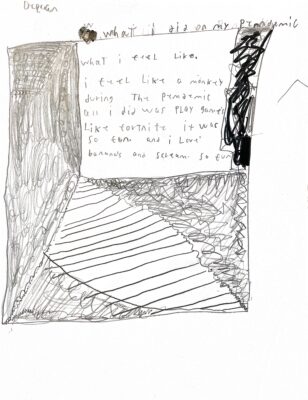 what i did on my prandemic
what i feel like.
i feel like a monkey
during The prndemic
all i did was PLAY games
Like fortnite it was
so fun and i Love
bananas and scream so fun